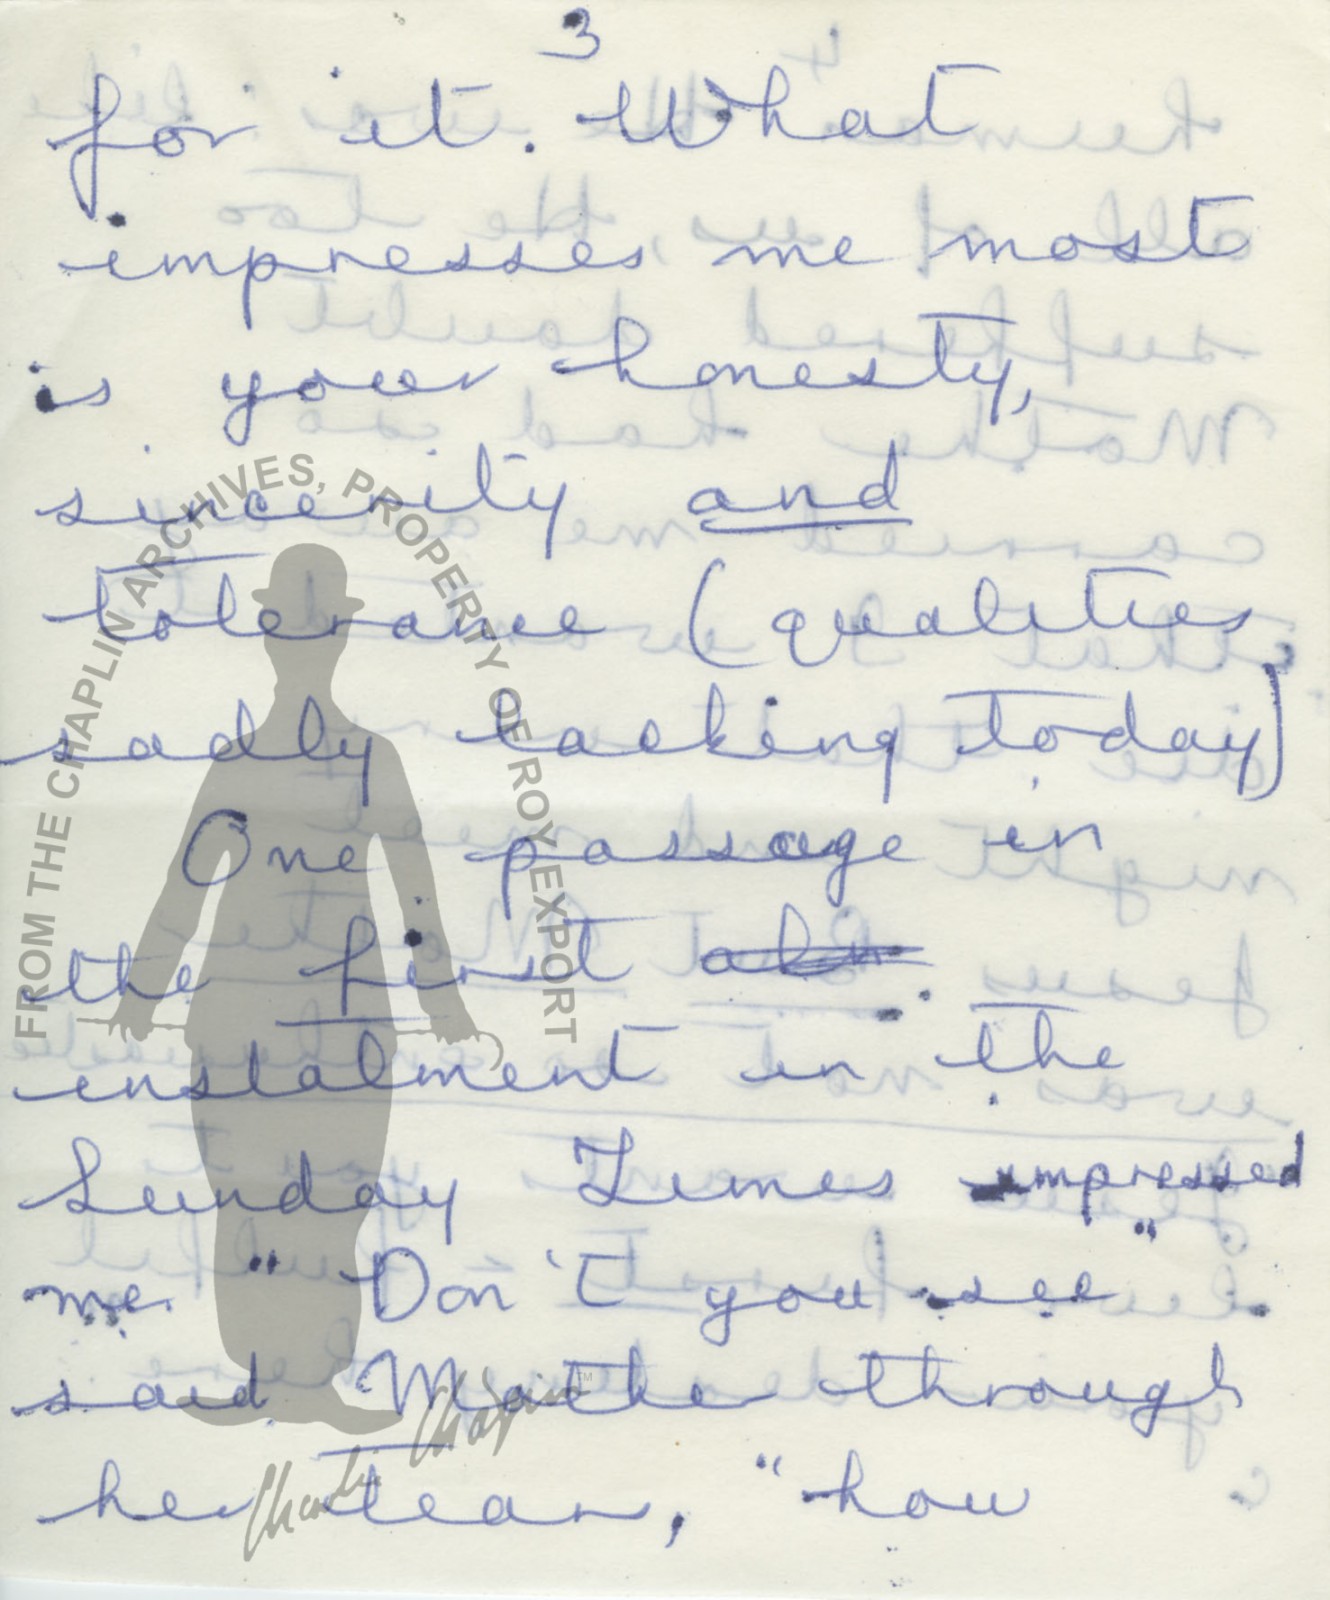 3
for it. What
impresses me most
is your honesty,
sincerity and
tolerance (qualities
sadly lacking today)
One passage in
the first
instalment in the
Sunday Times impressed
me. "Don't you see"
said Mother through
her tears, "how
FROM THE CHAPLIN ARCHIVES, PROPERTY OF ROY EXPORT
Charlie Chaplin
TM